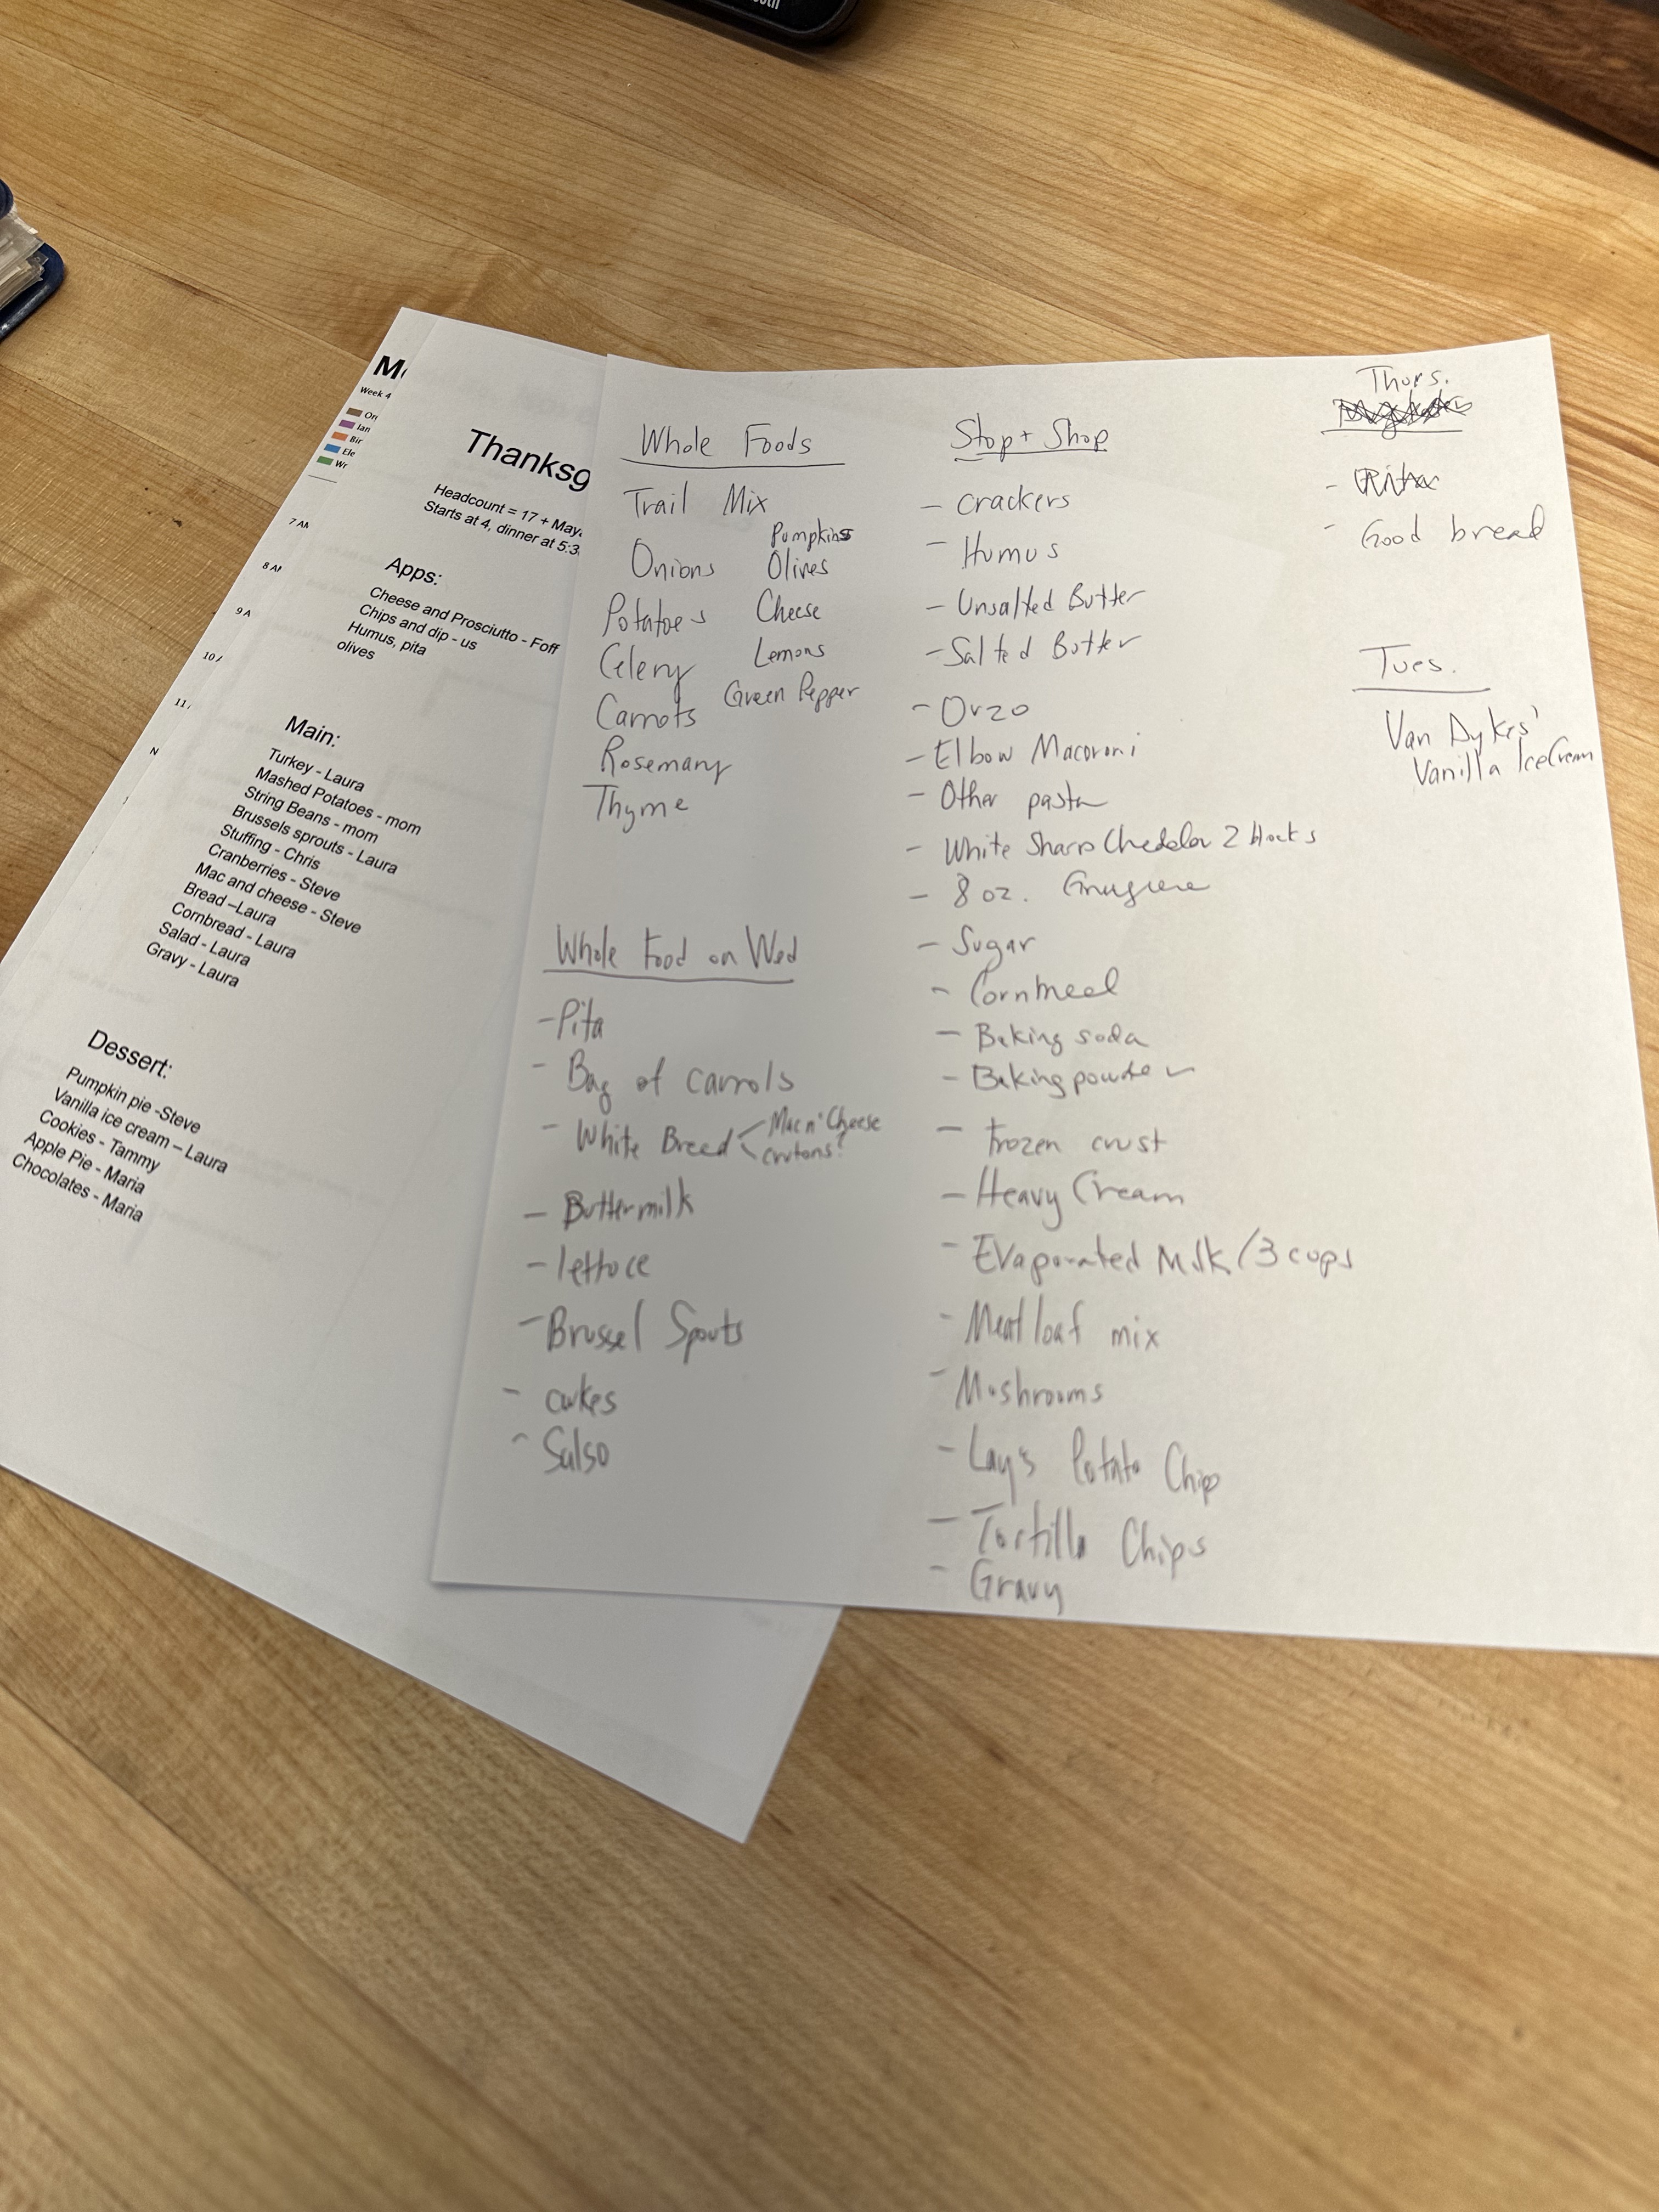 Week 4
7 AM
8 AM
9 A
10
11
N
Thanksg
Headcount = 17 + Maya
Starts at 4, dinner at 5:3
Apps:
Cheese and Prosciutto - Foff
Chips and dip - us
Humus, pita
olives
Main:
Turkey - Laura
Mashed Potatoes - mom
String Beans - mom
Brussels sprouts - Laura
Stuffing - Chris
Cranberries - Steve
Mac and cheese - Steve
Bread –Laura
Cornbread - Laura
Salad - Laura
Gravy - Laura
Dessert:
Pumpkin pie -Steve
Vanilla ice cream – Laura
Cookies - Tammy
Apple Pie - Maria
Chocolates - Maria
Whole Foods
Trail Mix
Onions
Potatoes
Celery
Carrots
Rosemary
Thyme
Pumpkins
Olives
Cheese
Lemons
Green Pepper
Whole Food on Wed
- Pita
- Bag of carrots
- White Bread < Mac n' Cheese
crutons?
- Buttermilk
- lettuce
- Brussel Spouts
- cukes
- Salsa
Stop + Shop
- crackers
- Humus
- Unsalted Butter
- Salted Butter
- Orzo
- Elbow Macoroni
- Other pasta
- White Sharp Cheddar 2 blocks
- 8 oz. Gruyere
- Sugar
- Cornmeal
- Baking soda
- Baking powder
- frozen crust
- Heavy Cream
- Evaporated Milk / 3 cups
- Meat loaf mix
- Mushrooms
- Lay's Potato Chip
- Tortilla Chips
- Gravy
Thurs.
- Pita
- Good bread
Tues.
Van Dykes'
Vanilla Ice Cream